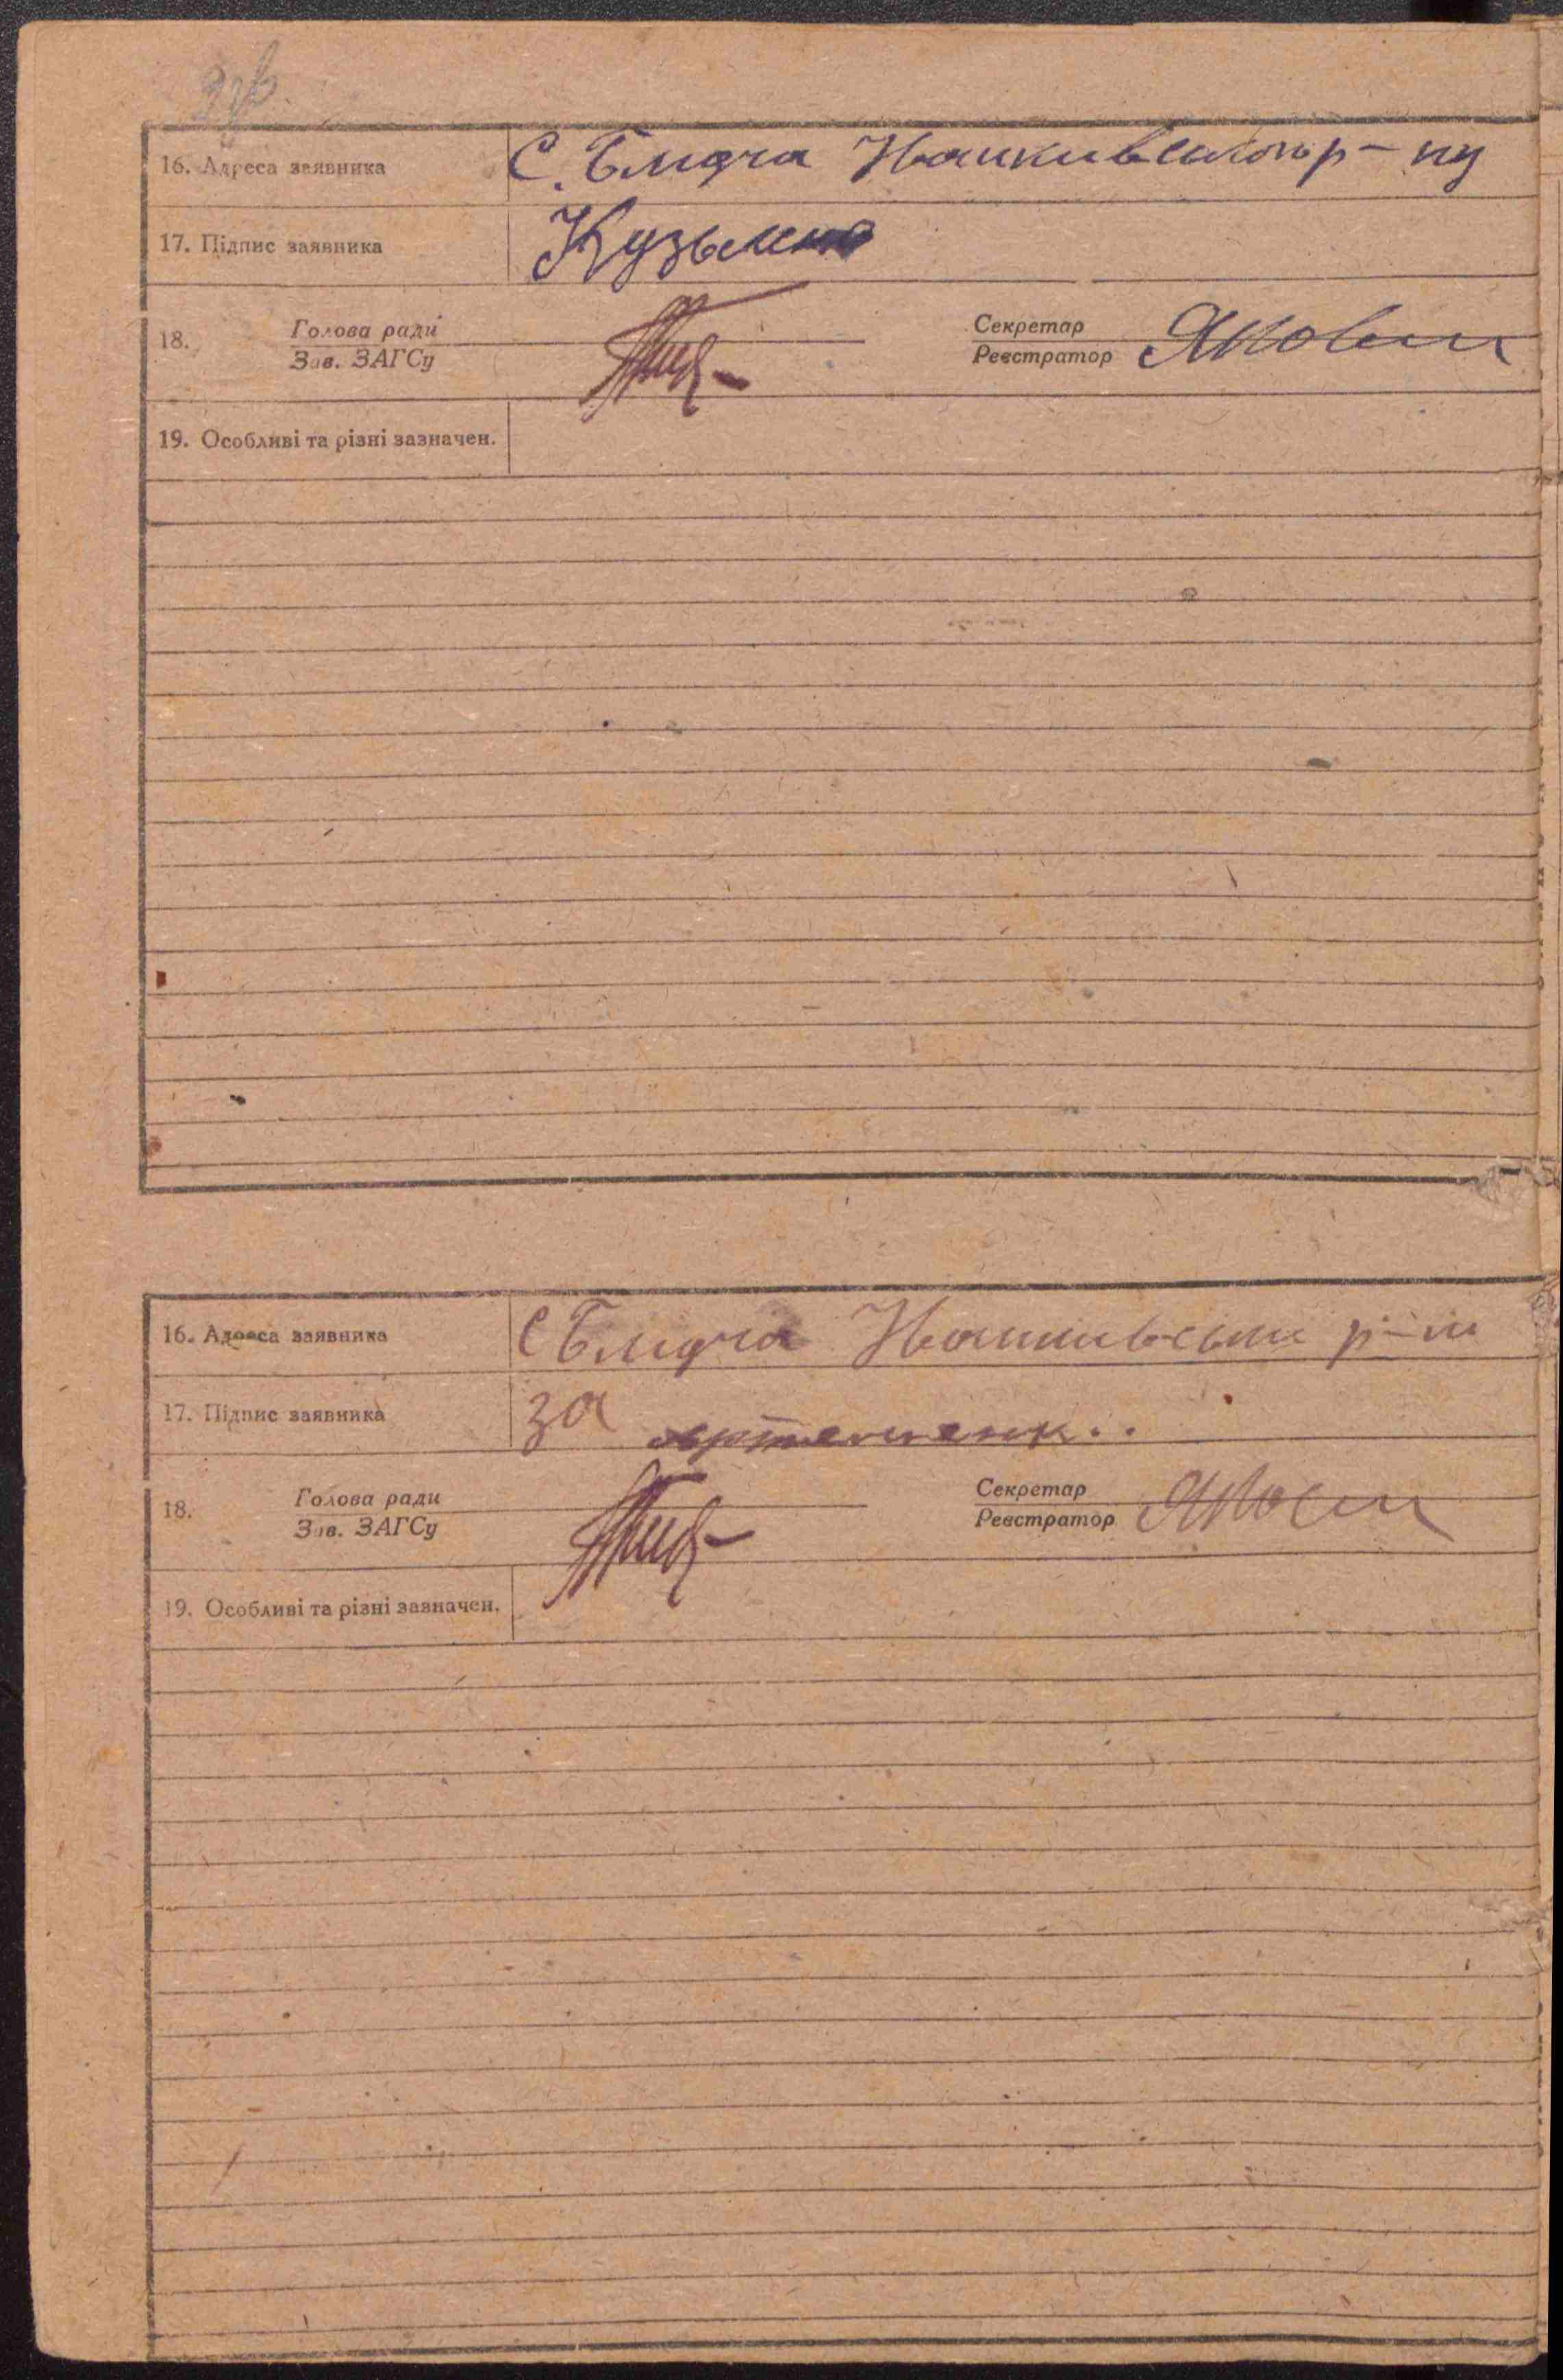 16. Адреса заявника С. Блидча Іванківського р-ну
17. Підпис заявника Кузьменко
18. Голова ради Секретар
Зав. ЗАГСу Реєстратор
19. Особливі та різні зазначен.
16. Адреса заявника С Блидча Іванківськи р-н
17. Підпис заявника за артеменк..
18. Голова ради Секретар
Зав. ЗАГСу Реєстратор
19. Особливі та різні зазначен.